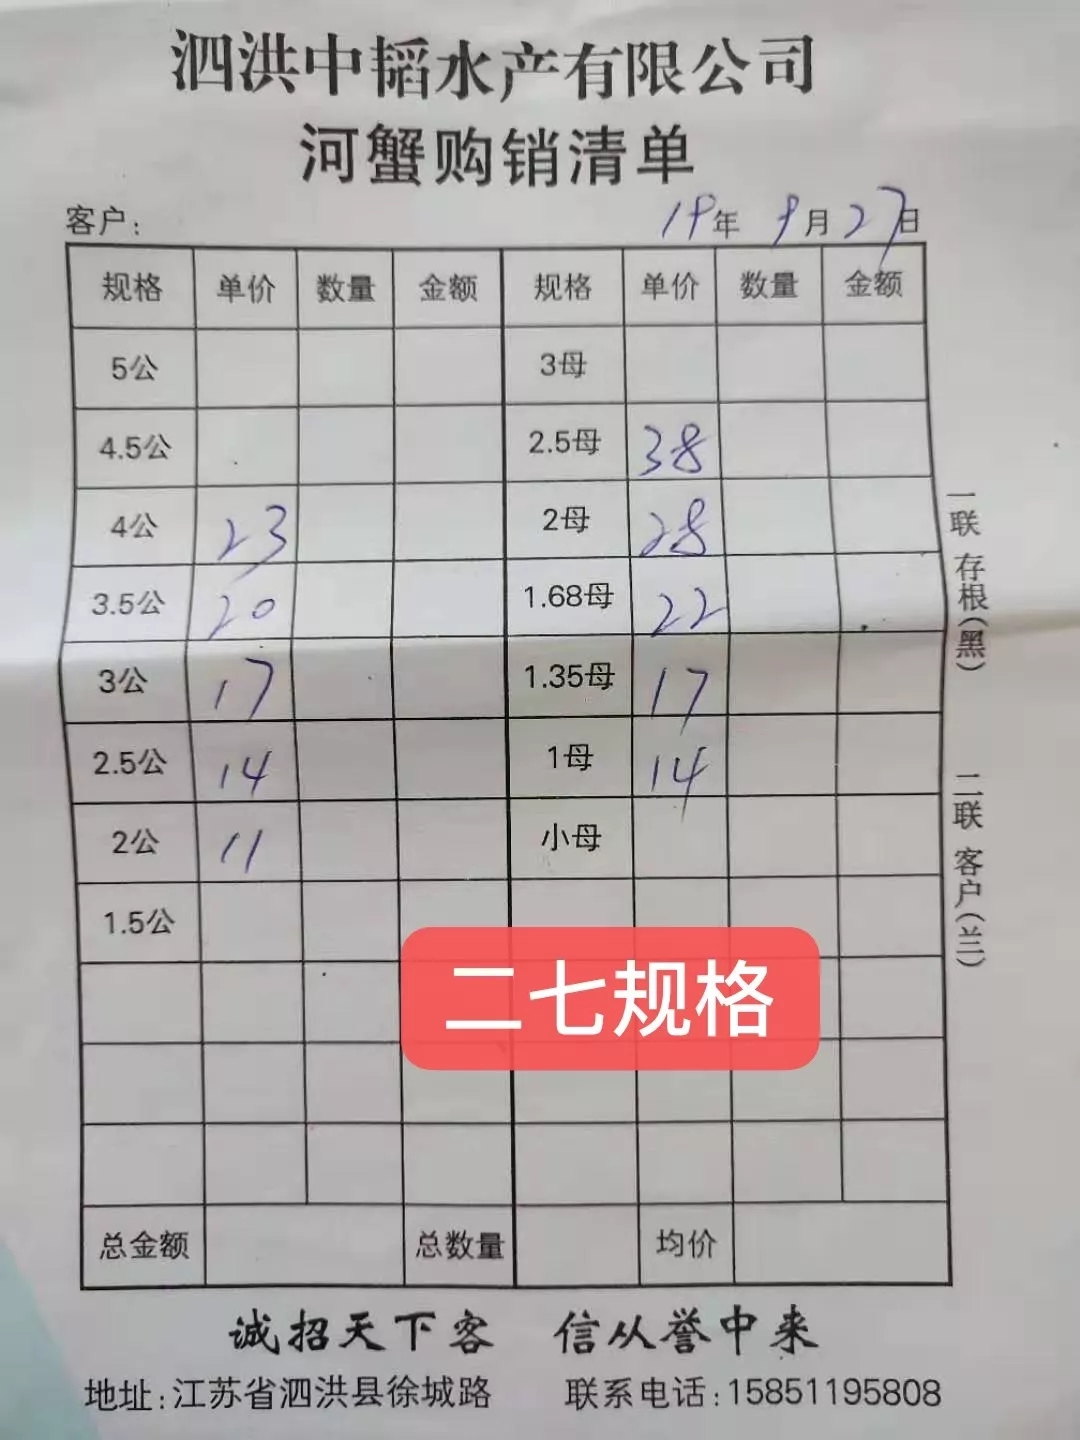 泗洪中韬水产有限公司
河蟹购销清单
客户： 19年 9月27日
规格 单价 数量 金额 规格 单价 数量 金额
5公 3母
4.5公 2.5母 38
4公 23 2母 28
3.5公 20 1.68母 22
3公 17 1.35母 17
2.5公 14 1母 14
2公 11 小母
1.5公
二七规格
总金额 总数量 均价
诚招天下客 信从誉中来
地址：江苏省泗洪县徐城路 联系电话：15851195808
一联 存根（黑）
二联 客户（兰）